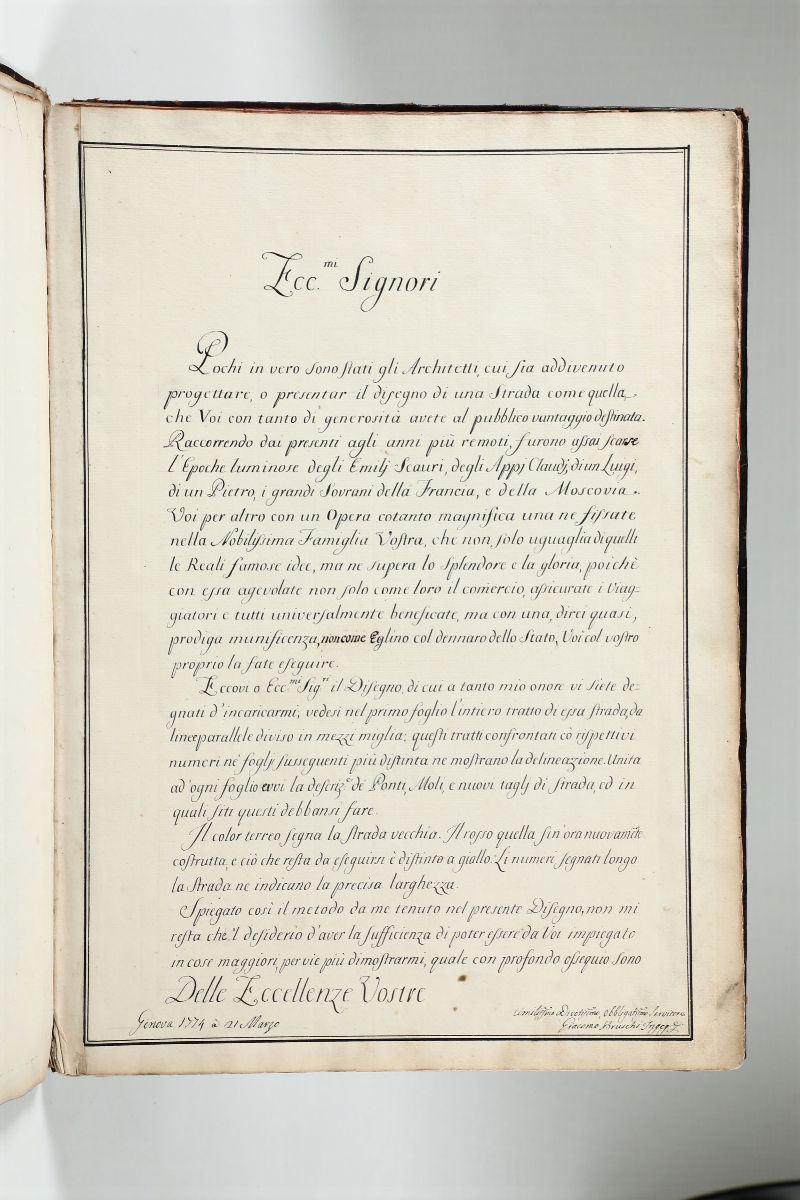 Ecc.mi Signori
Pochi in vero sono stati gli Architetti, cui sia addivenuto
progettare, o presentar il disegno di una Strada come quella,
che Voi con tanto di generosità avete al pubblico vantaggio destinata.
Raccorrendo dai presenti agli anni più remoti, furono assai scarse
l'Epoche luminose degli Emilj Scauri, degli Appj Claudj, di un Luigi,
di un Pietro, i grandi Sovrani della Francia, e della Moscovia.
Voi per altro con un Opera cotanto magnifica una ne fissate
nella Nobilissima Famiglia Vostra, che non solo uguaglia di quelli
le Reali famose idee, ma ne supera lo splendore e la gloria, poichè
con essa agevolate non solo come loro il comercio, assicurate i Viag-
giatori e tutti universalmente beneficate, ma con una, direi quasi,
prodiga munificenza, non come Eglino col dennaro dello Stato, Voi col vostro
proprio la fate eseguire.
Eccovi o Ecc.mi Sig.ri il Disegno, di cui a tanto mio onore vi siete de-
gnati d'incaricarmi; vedesi nel primo foglio l'intiero tratto di essa strada, da
linee parallele diviso in mezzi miglia; questi tratti confrontati cò rispettivi
numeri nè foglj susseguenti più distinta ne mostrano la delineazione. Unita
ad'ogni foglio evvi la descriz.e de Ponti, Moli, e nuovi taglj di strada, ed in
quali siti questi debbansi fare.
Il color terreo segna la strada vecchia. Il rosso quella sin'ora nuovamte
costrutta, e ciò che resta da eseguirsi è distinto a giallo. Li numeri segnati longo
la Strada ne indicano la precisa larghezza.
Spiegato così il metodo da me tenuto nel presente Disegno, non mi
resta che 'l desiderio d'aver la sufficienza di poter essere da Voi impiegato
in cose maggiori, per vie più dimostrarmi, quale con profondo ossequio sono
Delle Eccellenze Vostre
Genova 1774 à 21 Marzo
Obbligatissimo Servitore
Giacomo Bruschi Ingeg.